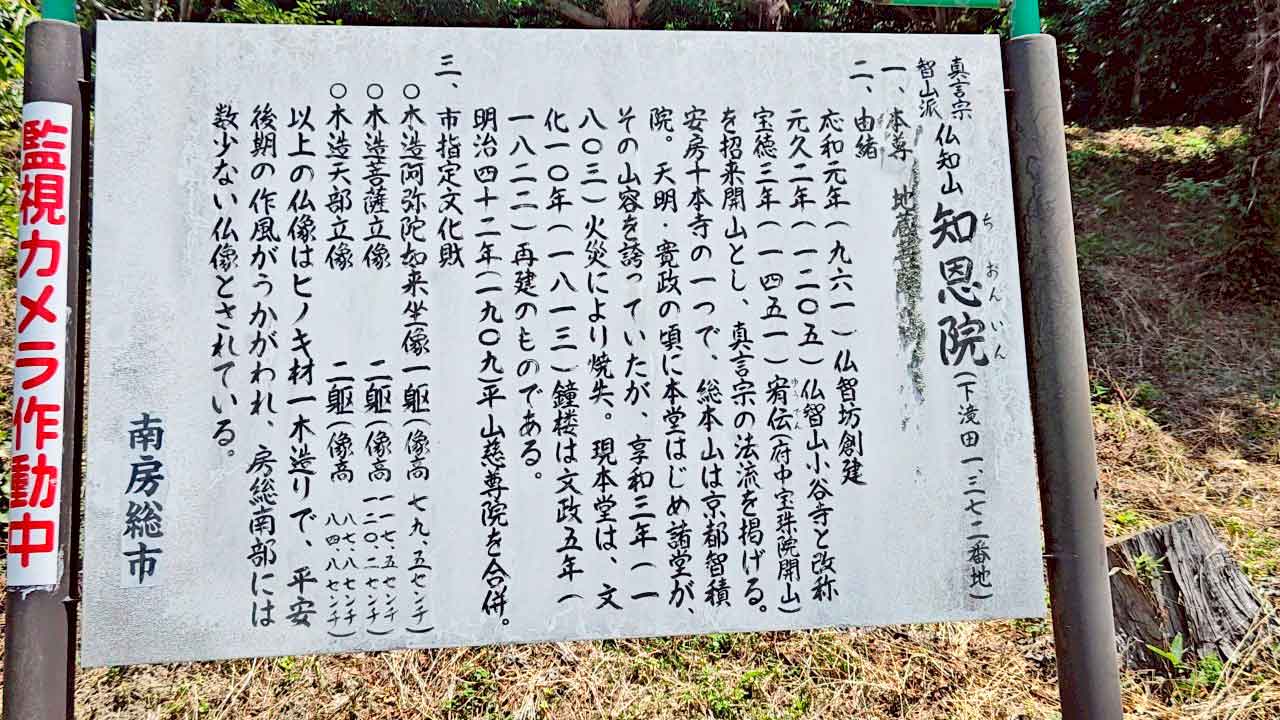 真言宗
智山派
仏知山 知恩院(下滝田一、三七二番地)
ち おん いん
一、本尊 地蔵菩薩
二、由緒
応和元年(九六一)仏智坊創建
元久二年(一二〇五)仏智山小谷寺と改称
宝徳三年(一一四五一)宥伝(府中宝珠院開山)
ゆうでん
を招来開山とし、真言宗の法流を掲げる。
安房十本寺の一つで、総本山は京都智積
院。天明・寛政の頃に本堂はじめ諸堂が、
その山容を誇っていたが、享和三年(一
八〇三)火災により焼失。現本堂は、文
化一〇年(一八一三)鐘楼は文政五年(
一八二二)再建のものである。
明治四十二年(一九〇九)平山慈尊院を合併。
三、市指定文化財
〇木造阿弥陀如来坐像一躯(像高 七九、五センチ)
〇木造菩薩立像 二躯(像高 一一七、五センチ 一二〇、二センチ)
〇木造天部立像 二躯(像高 八七、八センチ 八四、八センチ)
以上の仏像はヒノキ材一木造りで、平安
後期の作風がうかがわれ、房総南部には
数少ない仏像とされている。
南房総市
監視カメラ作動中